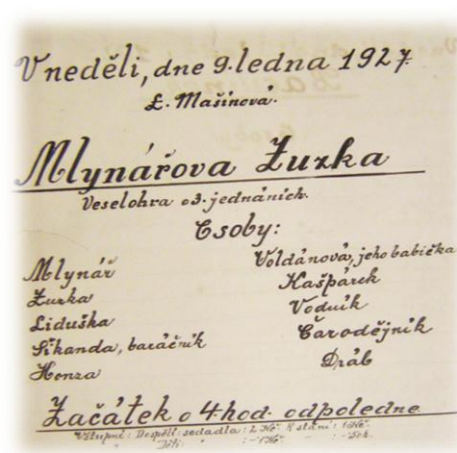 V neděli, dne 9. ledna 1927.
E. Mašínová.
Mlynářova Zuzka
Veselohra o 3. jednáních.
Osoby:
Mlynář
Zuzka
Liduška
Šikanda, baráčník
Honza
Voldánová, jeho babička
Kašpárek
Vodník
Čarodějník
Dráb
Začátek o 4 hod. odpoledne
Vstupné: Dospělí: sedadla: 2 Kč K stání: 1 Kč.
Děti: